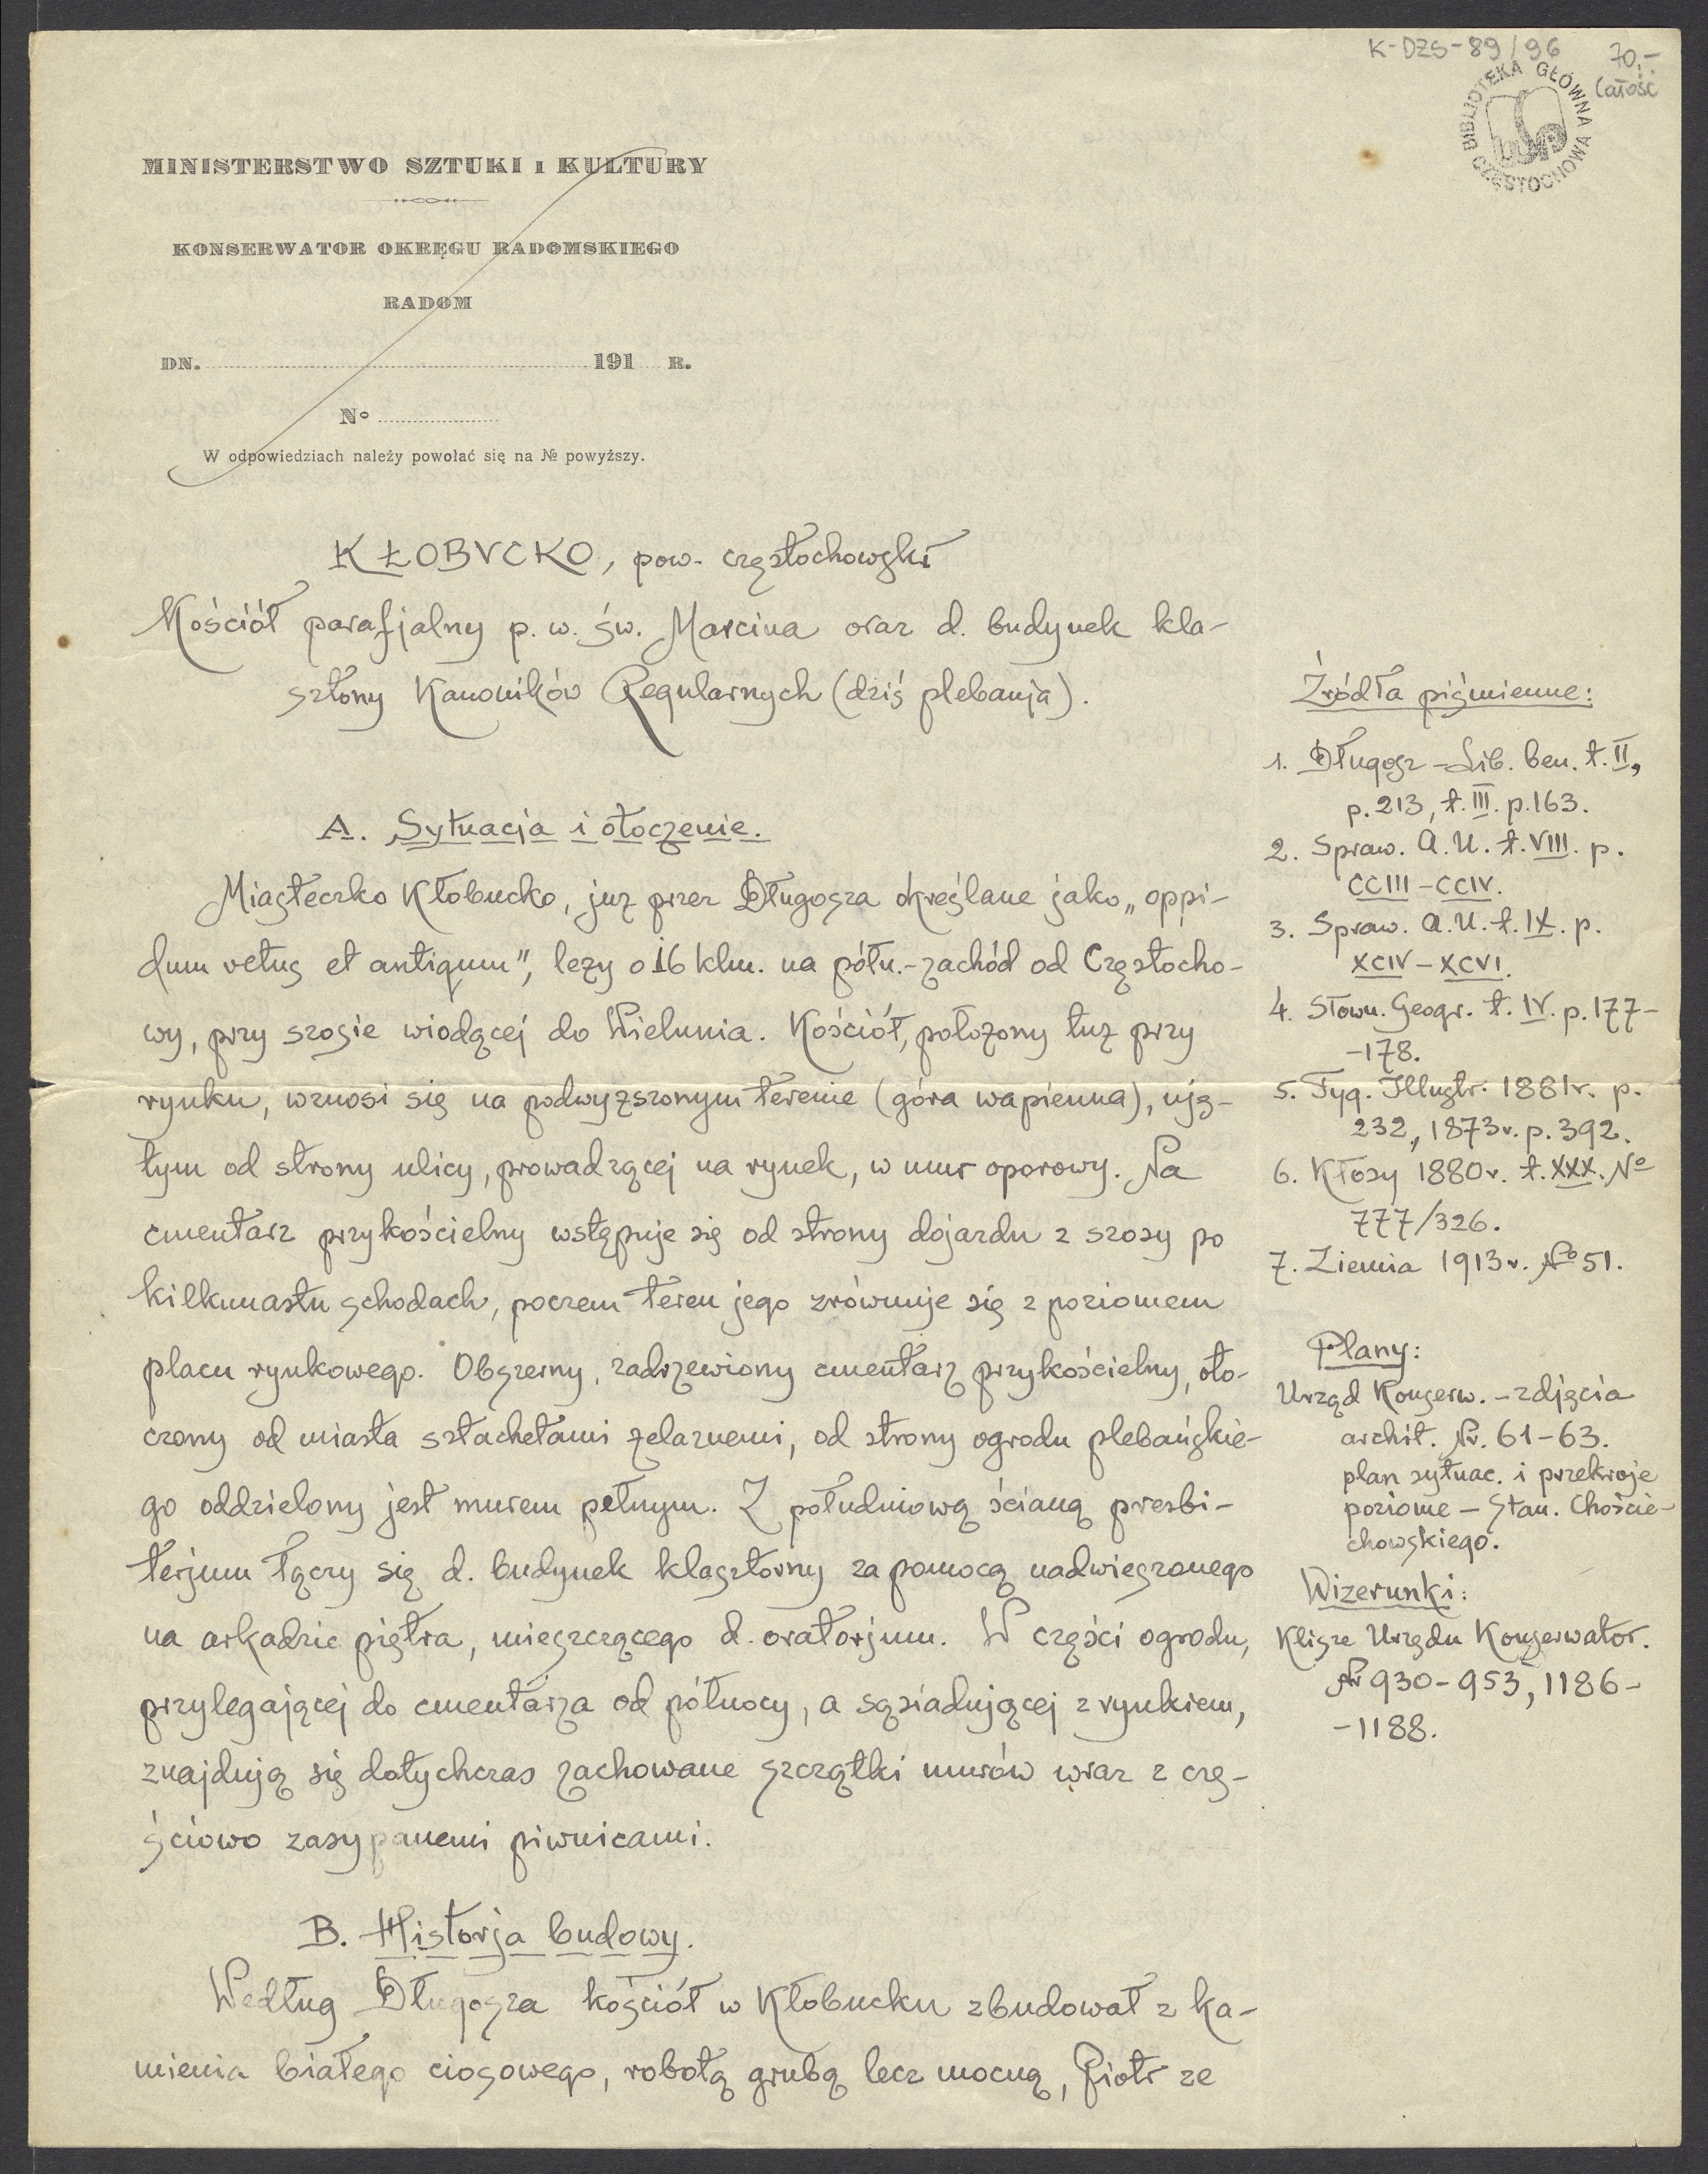 K-DZS-89/96
70,-
Całość
BIBLIOTEKA GŁÓWNA
CZĘSTOCHOWA
MINISTERSTWO SZTUKI I KULTURY
KONSERWATOR OKRĘGU RADOMSKIEGO
RADOM
DN. 191 R.
No
W odpowiedziach należy powołać się na № powyższy.
KŁOBVCKO, pow. częstochowski
Kościół parafjalny p. w. św. Marcina oraz d. budynek kla-
sztorny Kanoników Regularnych (dziś plebanja).
A. Sytuacja i otoczenie.
Miasteczko Kłobucko, już przez Długosza określane jako „oppi-
dum vetus et antiqum”, leży o 16 klm. na półn.-zachód od Częstocho-
wy, przy szosie wiodącej do Wielunia. Kościół, położony tuż przy
rynku, wznosi się na podwyższonym terenie (góra wapienna), uję-
tym od strony ulicy, prowadzącej na rynek, w mur oporowy. Na
cmentarz przykościelny wstępuje się od strony dojazdu z szosy po
kilkunastu schodach, poczem teren jego zrównuje się z poziomem
placu rynkowego. Obszerny, zadrzewiony cmentarz przykościelny, oto-
czony od miasta sztachetami żelaznemi, od strony ogrodu plebańskie-
go oddzielony jest murem pełnym. Z południową ścianą presbi-
terjum łączy się d. budynek klasztorny za pomocą nadwieszonego
na arkadzie piętra, mieszczącego d. oratorjum. W części ogrodu,
przylegającej do cmentarza od północy, a sąsiadującej z rynkiem,
znajdują się dotychczas zachowane szczątki murów wraz z czę-
ściowo zasypanemi piwnicami.
B. Historja budowy.
Według Długosza kościół w Kłobucku zbudował z ka-
mienia białego ciosowego, robotą grubą lecz mocną, Piotr ze
Źródła piśmienne:
1. Długosz - Lib. ben. t. II,
p. 213, t. III. p. 163.
2. Spraw. A. U. t. VIII. p.
CCIII - CCIV.
3. Spraw. A. U. t. IX. p.
XCIV - XCVI.
4. Słown. Geogr. t. IV. p. 177-
-178.
5. Tyg. Illustr. 1881 r. p.
232, 1873 r. p. 392.
6. Kłosy 1880 r. t. XXX. No
777/326.
7. Ziemia 1913 r. No 51.
Plany:
Urząd Konserw. - zdjęcia
archit. Nr. 61-63.
plan sytuac. i przekroje
poziome - Stan. Choście-
chowskiego.
Wizerunki:
Klisze Urzędu Konserwator.
Nr 930-953, 1186-
-1188.